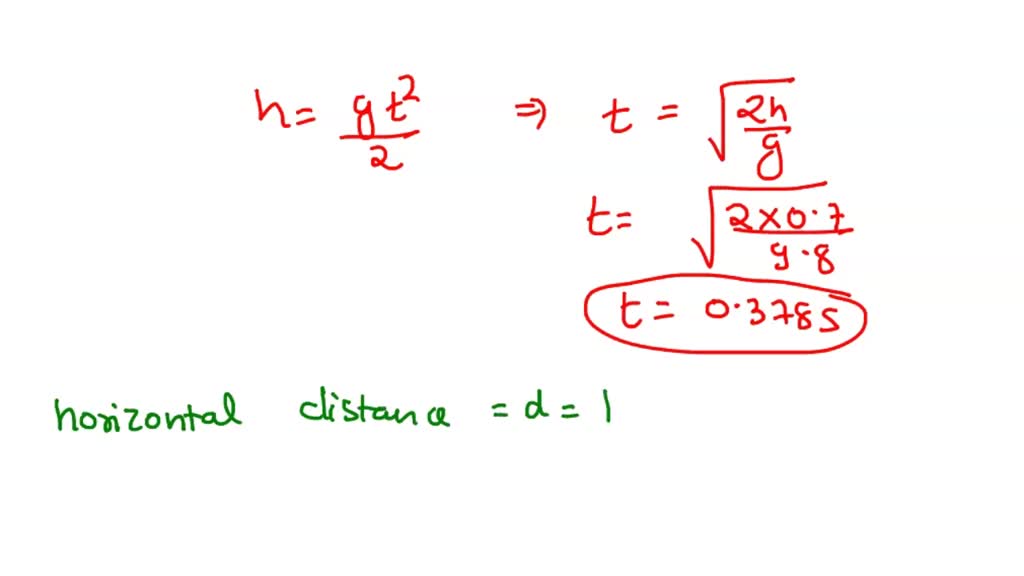 h = gt²/2 ⇒ t = √(2h/g)
t = √(2×0.7/9.8)
t = 0.378s
horizontal distance = d = 1